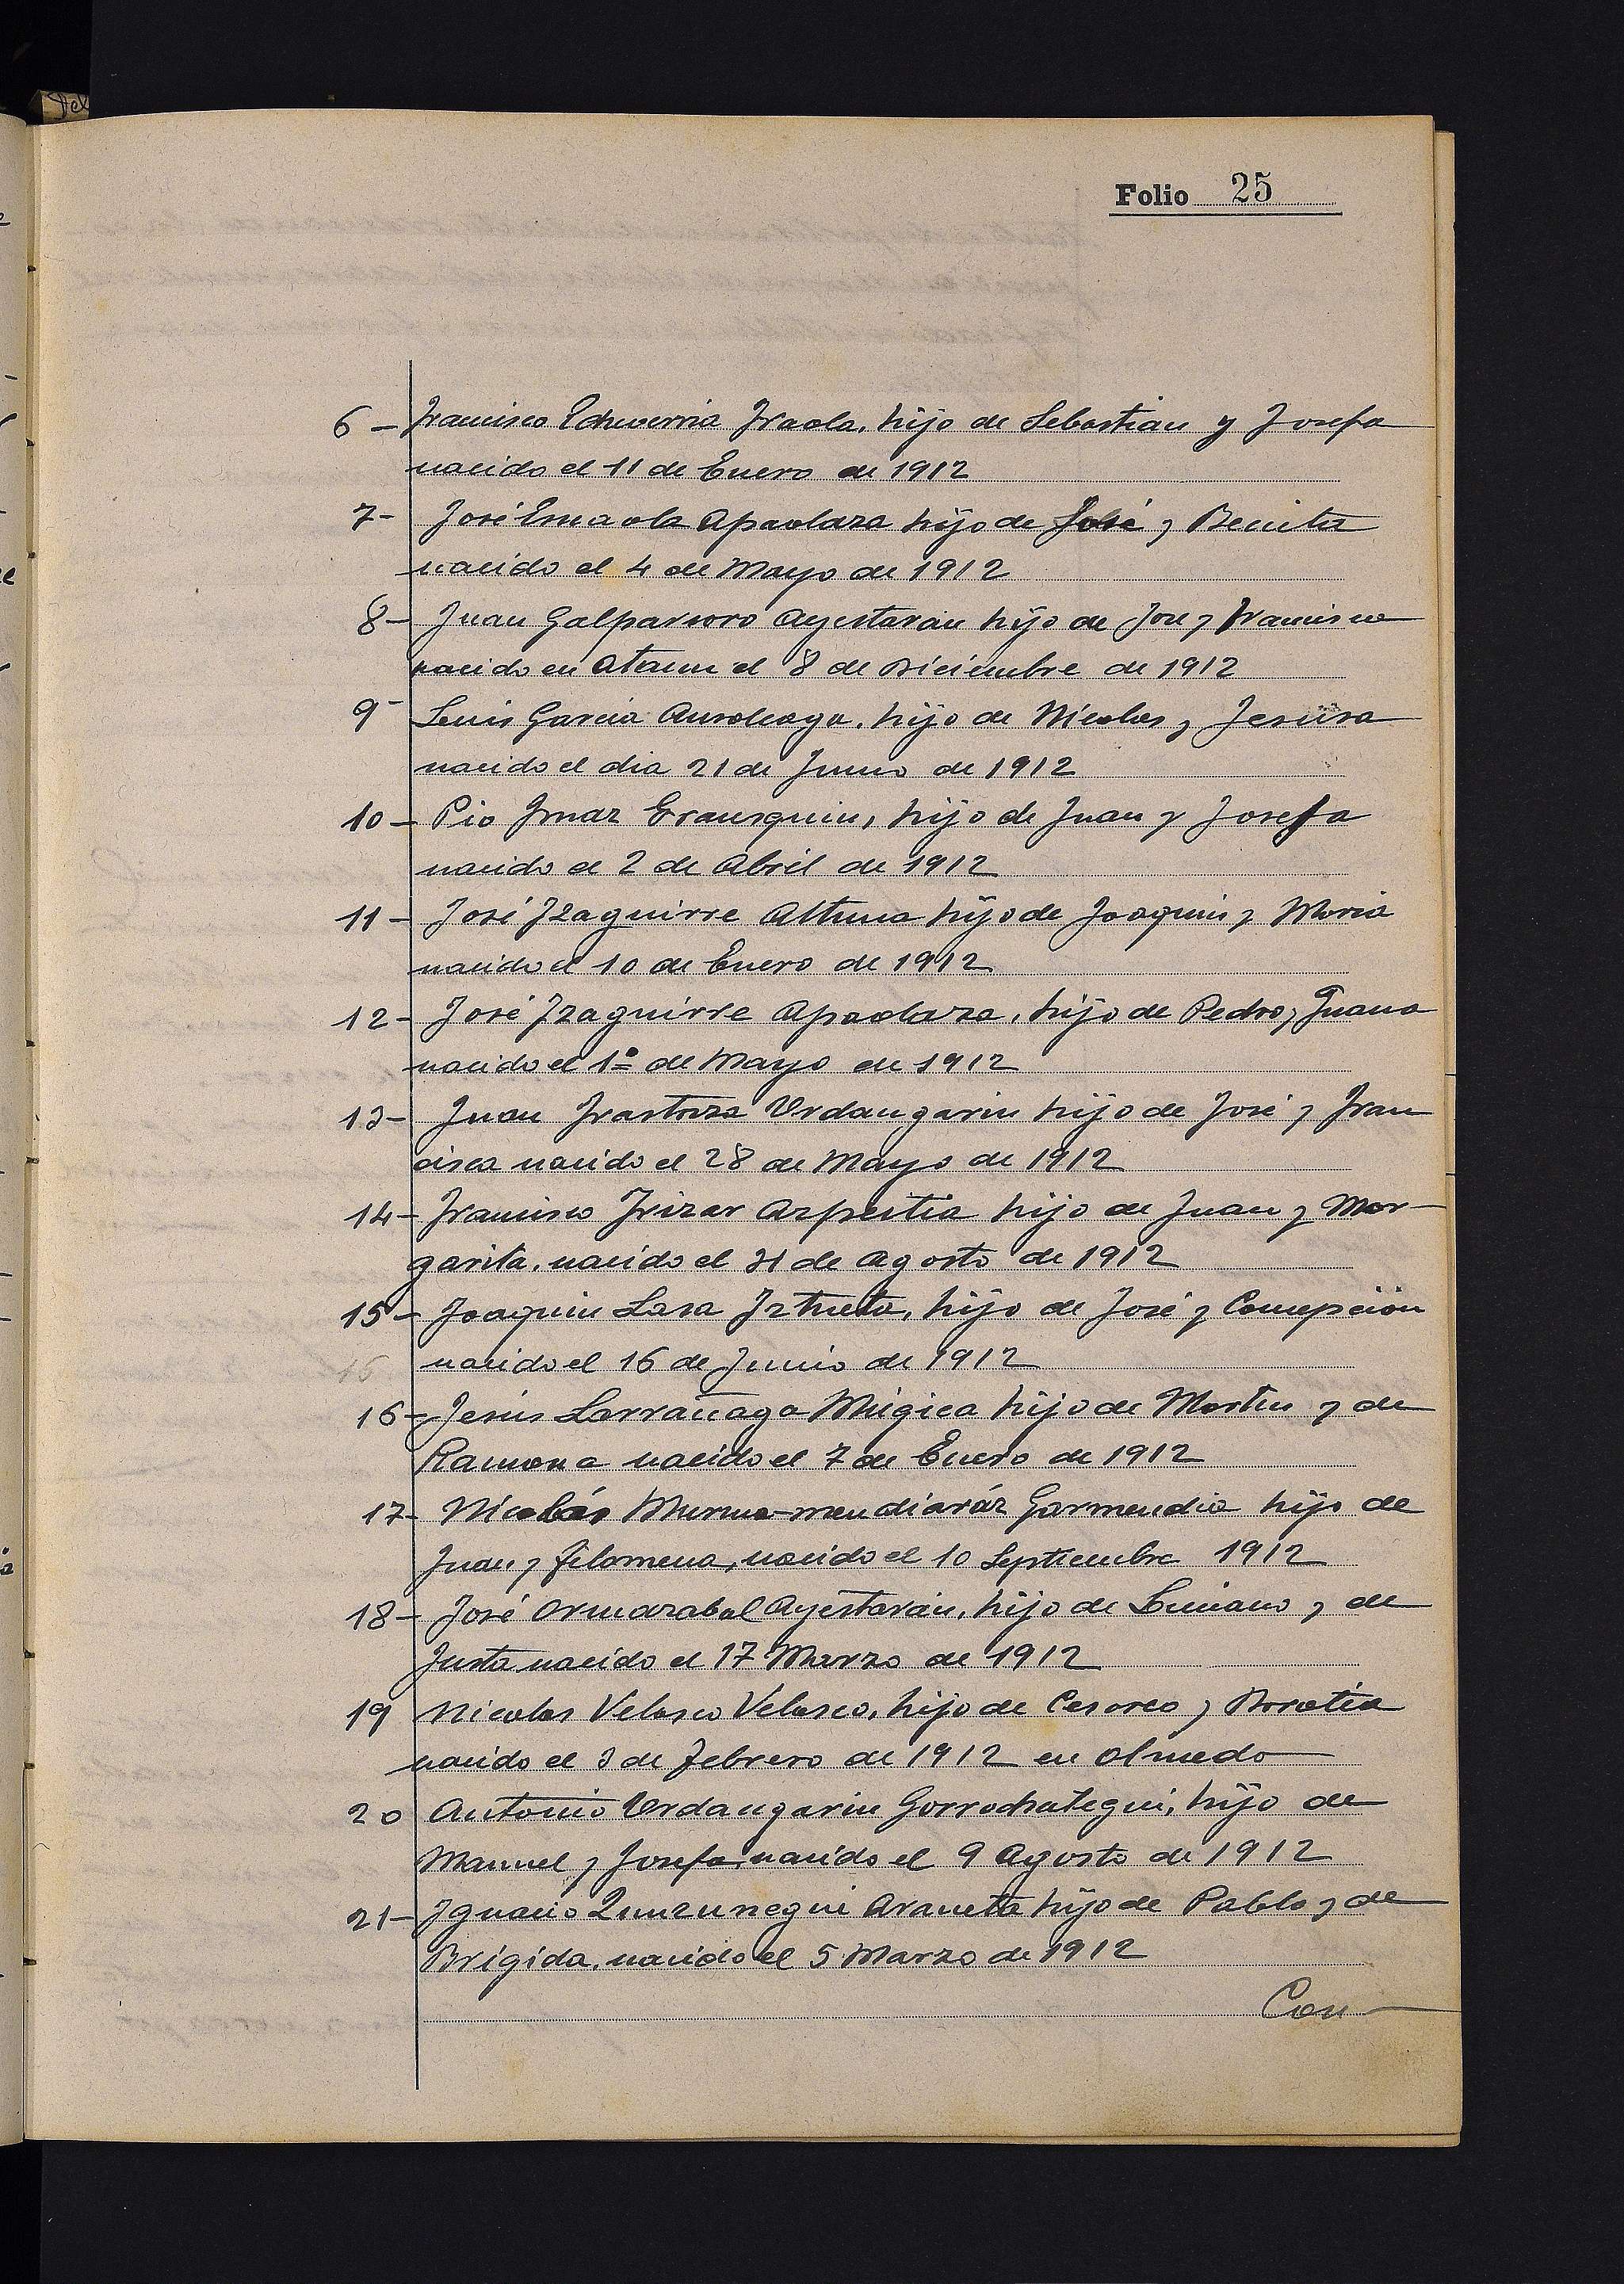 Folio 25
6 - Francisco Echeverria Iraola, hijo de Sebastian y Josefa
nacido el 11 de Enero de 1912
7- José Ervaola Apaolaza hijo de José y Benita
nacido el 4 de Mayo de 1912
8- Juan Galparsoro Ayestarán hijo de Jose y Francisca
nacido en Ataun el 8 de Diciembre de 1912
9- Luis Garcia hijo de Nicolas y Jesusa
nacido el dia 21 de Junio de 1912
10- Pio Imaz Erausquin, hijo de Juan y Josefa
nacido el 2 de Abril de 1912
11- José Izaguirre Altuna hijo de Joaquin y Maria
nacido el 10 de Enero de 1912
12- José Izaguirre Apaolaza, hijo de Pedro y Juana
nacido el 1º de Mayo de 1912
13- Juan Irastorza Urdangarin hijo de José y Fran
cisca nacido el 28 de Mayo de 1912
14- Francisco Irizar Azpeitia hijo de Juan y Mar-
garita, nacido el 31 de Agosto de 1912
15- Joaquin Lasa Iztueta, hijo de José y Concepción
nacido el 16 de Junio de 1912
15
16- Jesús Larrañaga Múgica hijo de Martin y de
Ramona nacido el 7 de Enero de 1912
17- Nicolás Murua-mendiaráz Garmendia hijo de
Juan y Filomena, nacido el 10 Septiembre 1912
18- José Ormazabal Ayestarán, hijo de Luciano y de
Justa nacido el 17 Marzo de 1912
19 Nicolas Velasco Velasco, hijo de Cesareo y
nacido el 3 de Febrero de 1912 en Olmedo
20 Antonio Urdangarin Gorrochategui, hijo de
Manuel y Josefa nacido el 9 Agosto de 1912
21- Ignacio Zunzunegui Araneta hijo de Pablo y de
Brigida, nacido el 5 Marzo de 1912
Con